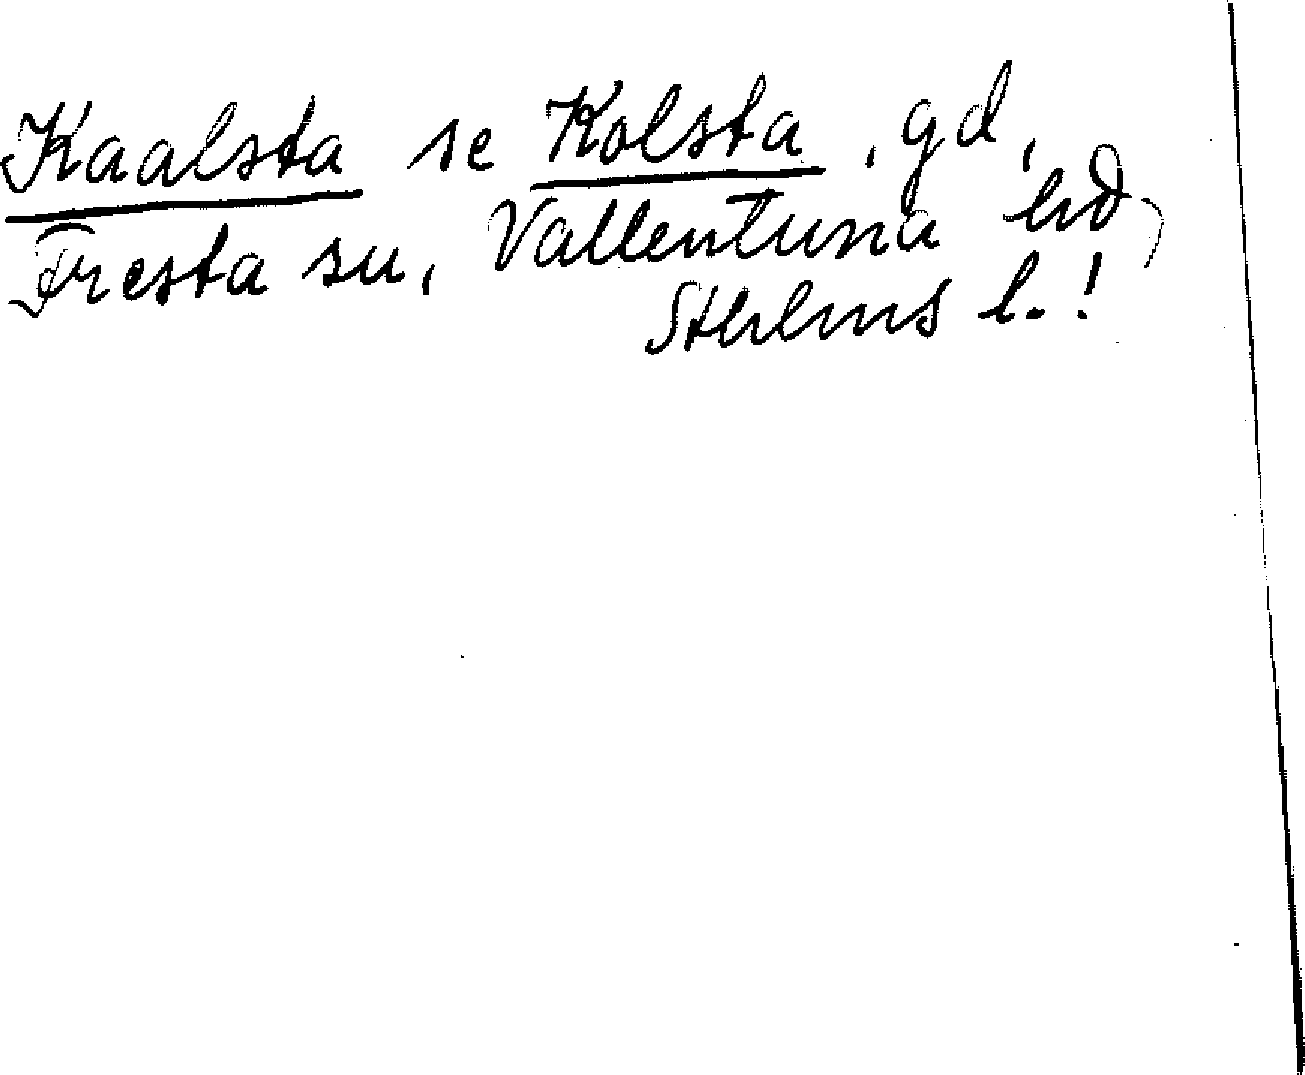 Kaalsta se Kolsta, gd,
Fresta sn, Vallentuna hd,
Sthlms l.!